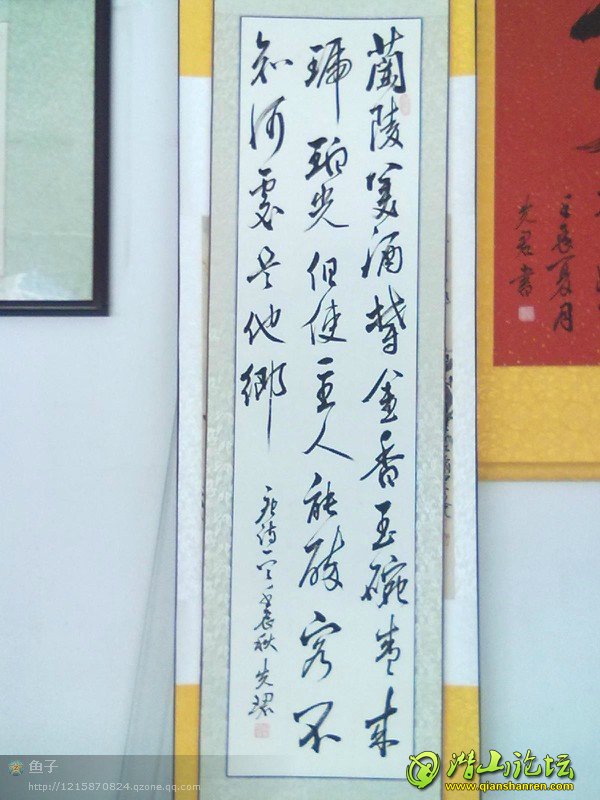 蘭陵美酒鬱金香玉碗盛来
琥珀光但使主人能醉客不
知何處是他鄉
唐詩一首壬辰秋
壬辰夏月
鱼子
http://1215870824.qzone.qq.com
潜山论坛
www.qianshanren.com